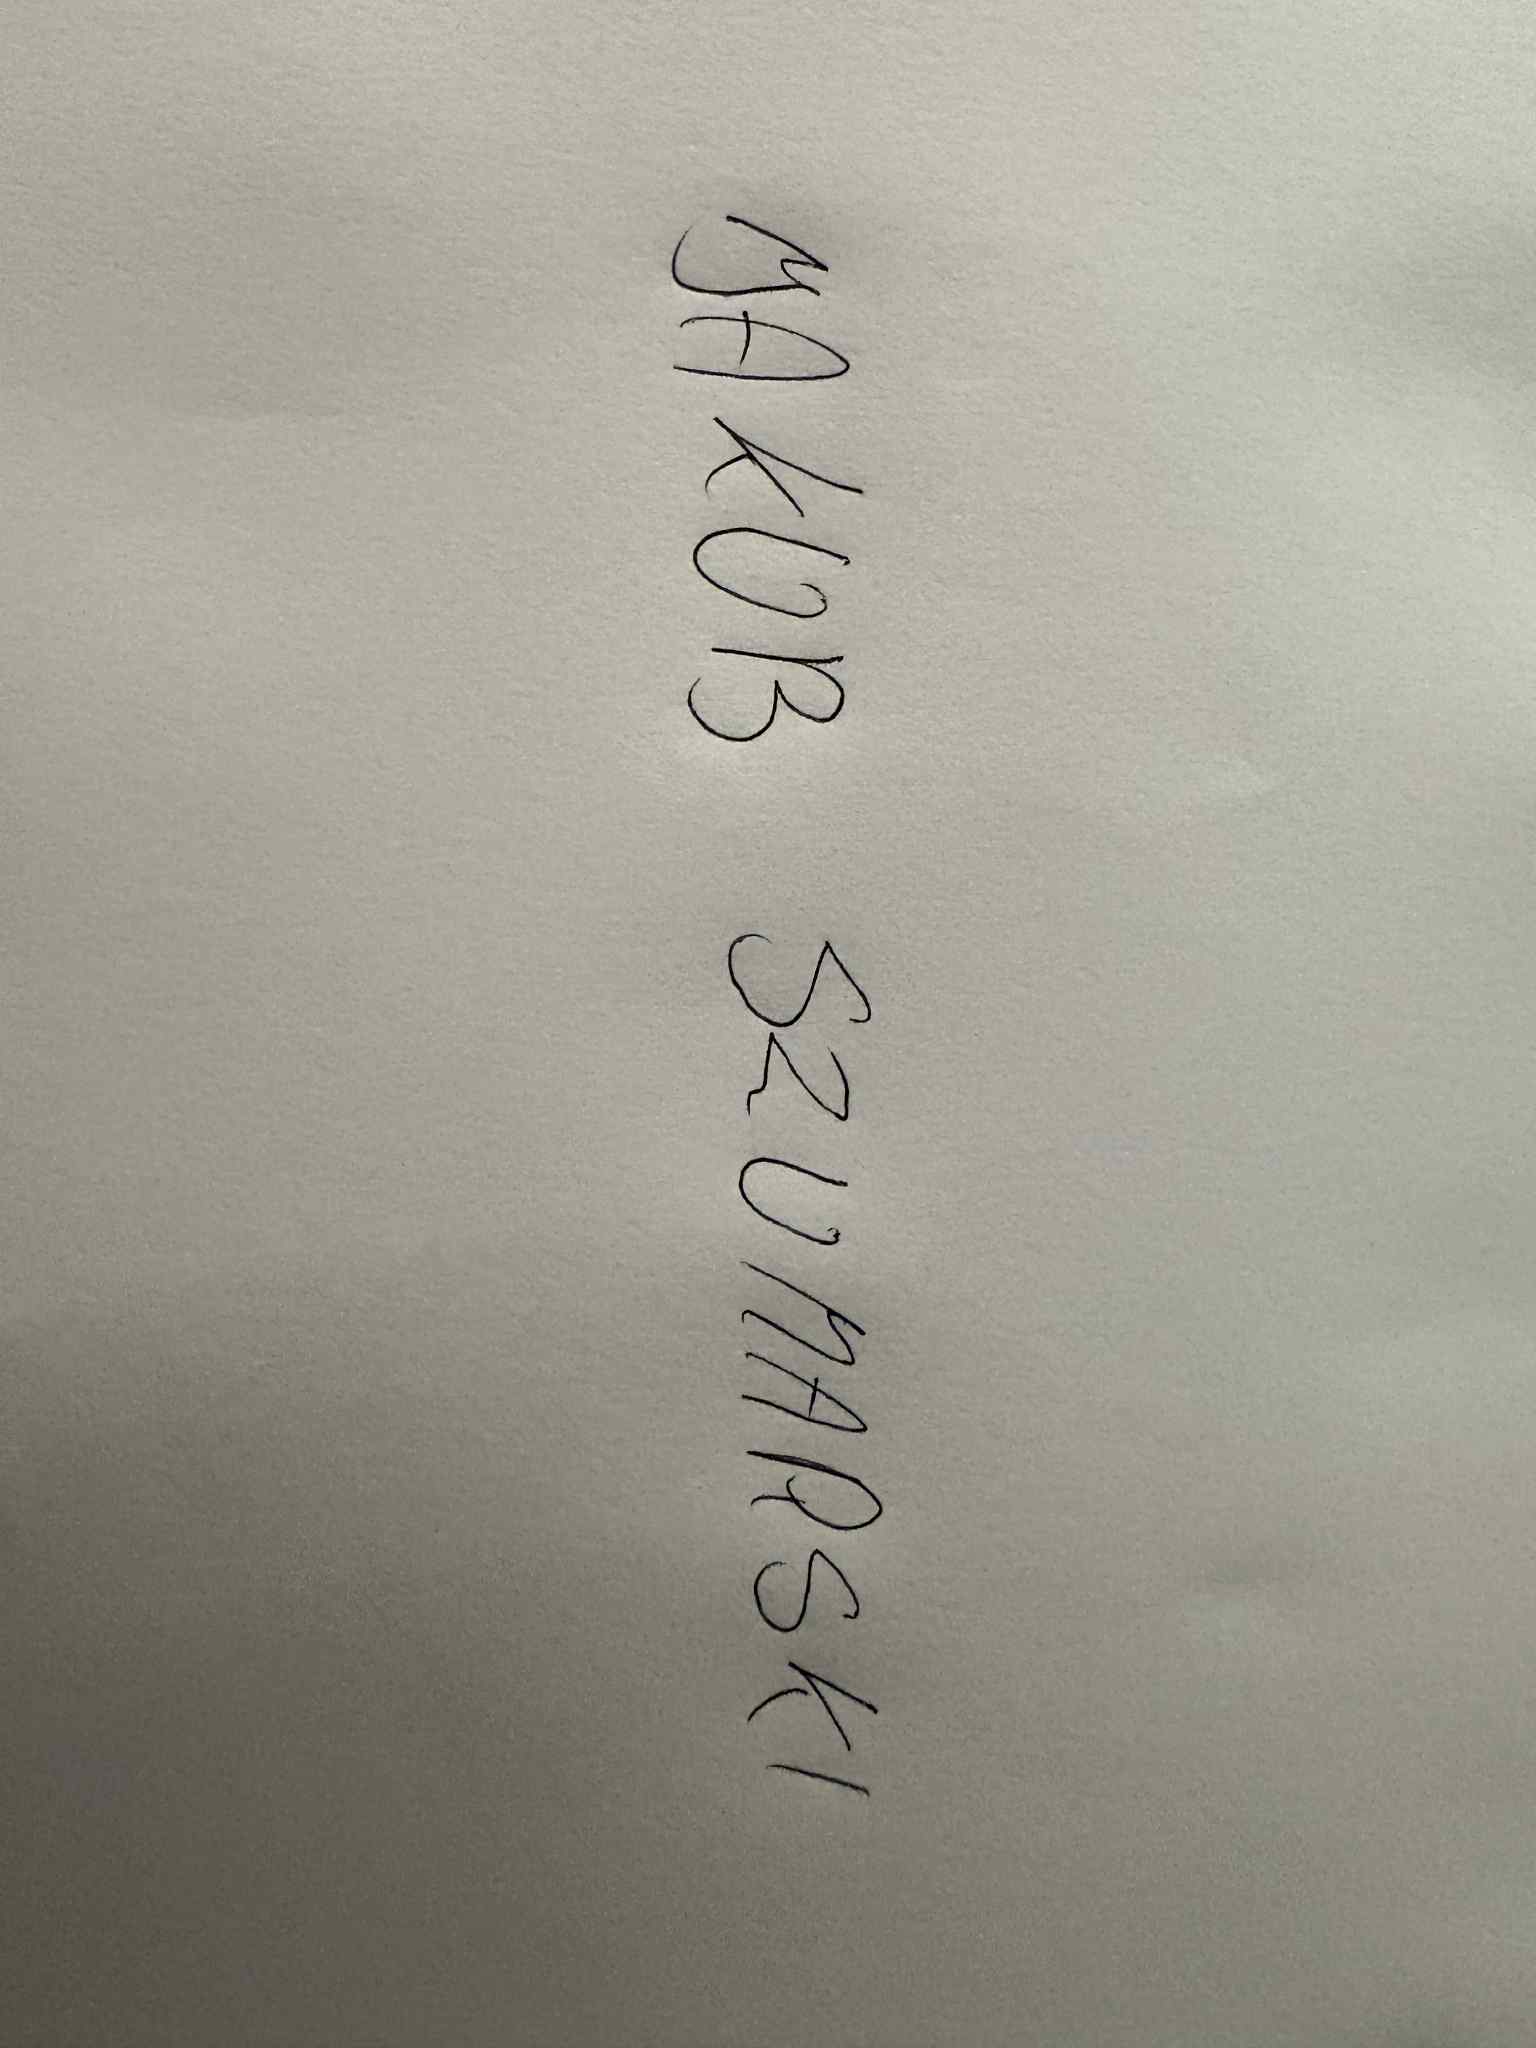 MAKUB SZUMARSKI